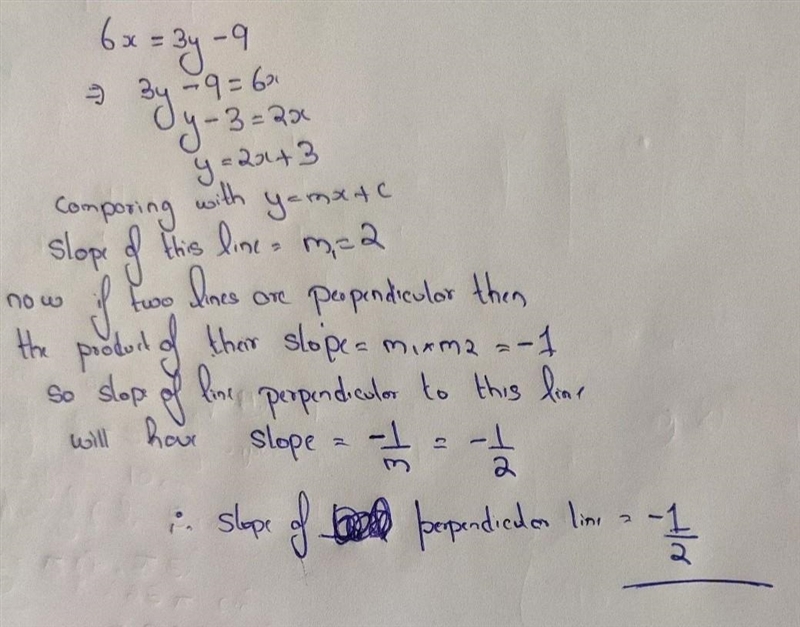 6x = 3y - 9
⇒ 3y - 9 = 6x
y - 3 = 2x
y = 2x + 3
Comparing with y = mx + c
Slope of this line = m₁ = 2
now if two lines are perpendicular then
the product of their slope = m₁ × m2 = -1
so slope of line perpendicular to this line
will have slope = -1/m = -1/2
∴ slope of perpendicular line = -1/2